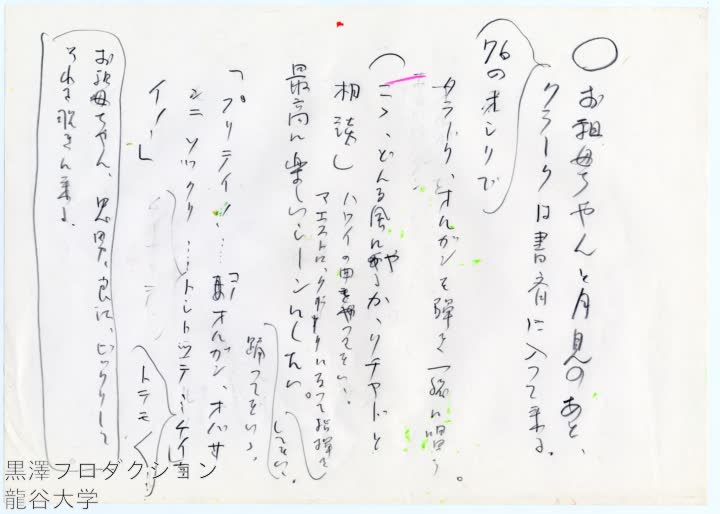 お祖母ちゃんと月見のあと、
クラークは書斎に入って来る。
76のオシリで
クラーク、オルガンを弾き一緒に唄う。
(こゝ、どんな風にやるか、リチャードと
相談し
ハワイの曲をやってもいい、
マエストロ、クラークいって指揮を
してもいい、
最高に楽しいシーンにしたい。
踊ってもいい、
「プリテイノ……コノオルガン、オバサ
ンニ ソックリ……トントッテ……チイ
イノー」
トテモ
お祖母ちゃん、思男、良江、ビックリして
それを覗きに来る。
黒澤プロダクション
龍谷大学